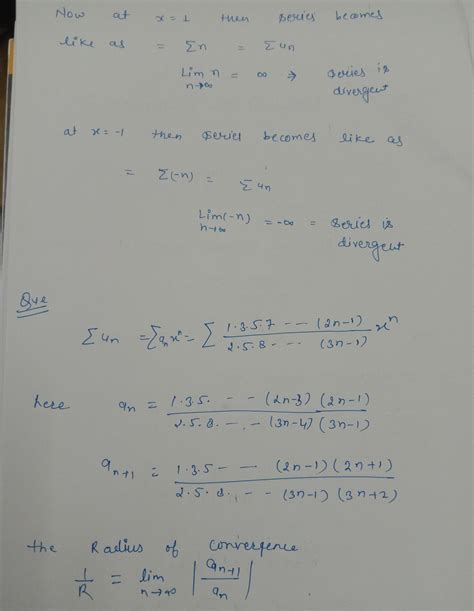 Now at x = 1 then series becomes
like as = Σn = Σun
Lim n→∞ n = ∞ ⇒ series is divergent
at x = -1 then series becomes like as
= Σ(-n) = Σun
Lim n→∞ (-n) = -∞ = series is divergent
Que
Σun = Σanxⁿ = Σ 1.3.5.7 --- (2n-1) / 2.5.8 -.. (3n-1) xⁿ
here an = 1.3.5. - -- (2n-3) (2n-1) / 2.5.8. -. - (3n-4) (3n-1)
an+1 = 1.3.5 - -- (2n-1) (2n+1) / 2.5.8. -- (3n-1) (3n+2)
the Radius of convergence
1/R = lim n→∞ |an+1/an|